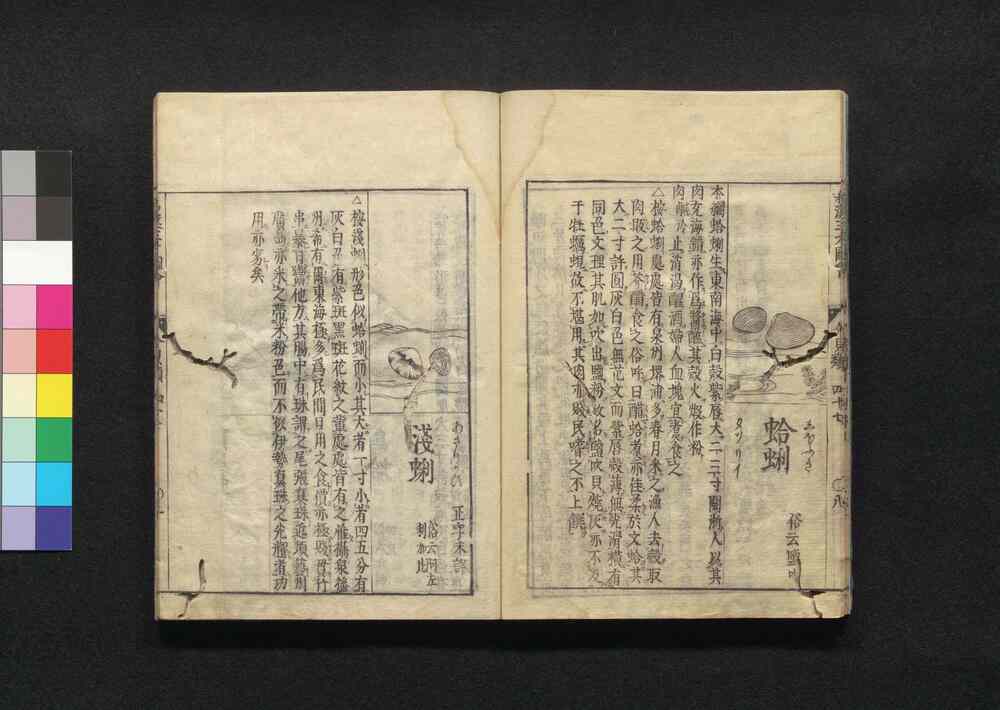 蛤蜊
しをふき
タリリイ
俗云鹽吹
本綱蛤蜊生東南海中白殼紫唇大二三寸閩浙人以其
肉充海錯亦作爲醬醯其殼火煅作粉
肉 止消渴醒酒婦人血塊宜煮食之
△按蛤蜊處處皆有泉州堺浦多春月采之漁人去殼取
肉販之用芥醋食之俗呼曰醋蛤煮亦佳柔於文蛤其
大二寸許圓灰白色無花文而紫唇殼薄無光滑橫有
同色文理其肌如吹出鹽粉故名鹽吹貝燒灰亦不及
于牡蠣蜆故不堪用其肉亦賤民嘗之不上饌
淺蜊
あさり
正字未詳
俗云阿左
△按淺蜊形色似蛤蜊而小其大者一寸小者四五分有
灰白 有紫斑黑斑花紋之 處處皆有之 攝泉播
州希有 東海極多爲民間日用之食價亦極賤 竹
串 乾 他方其腸中有珠謂之尾張真珠
亦米之帶米粉色而不似伊勢真珠之光耀 功
用亦劣矣